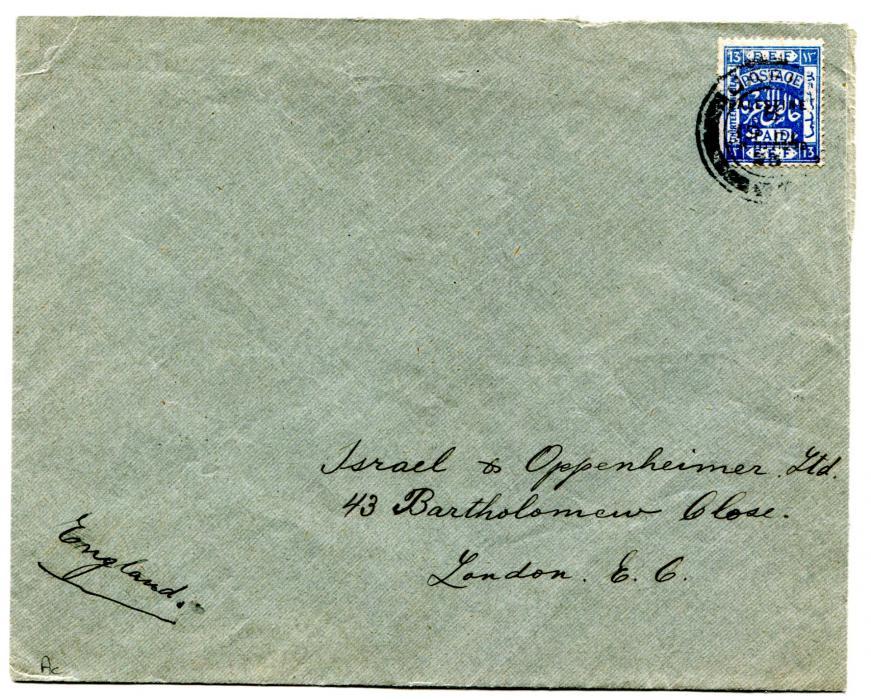 13 E.E.F. ١٣
POSTAGE
PAID
E.E.F. 13
Israel & Oppenheimer. Ltd.
43 Bartholomew Close.
London. E. C.
England.
Ac